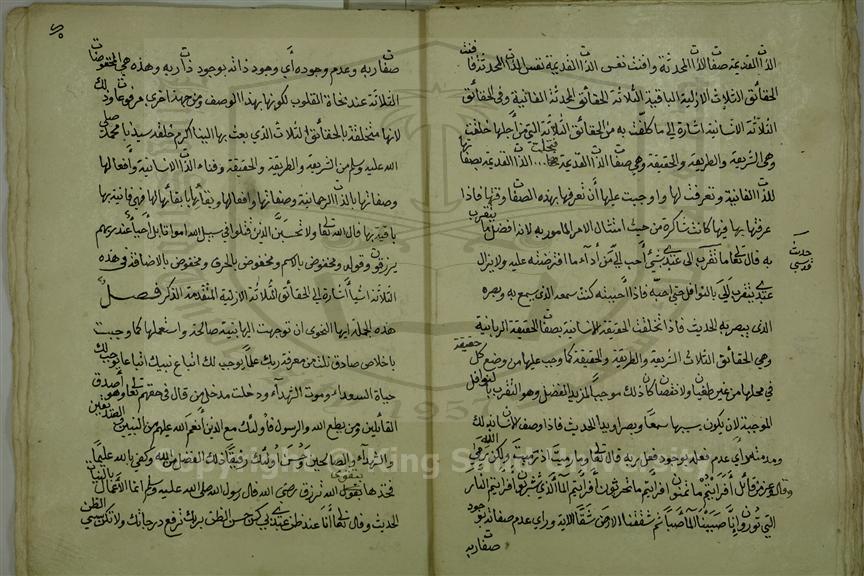 الذات القديمة صفات الذات المحدثة وافنت نفس الذات القديمة نفس الذات المحدثة فافنت
الحقائق الثلاث الازلية الباقية الثلاثة الحقائق المحدثة الفانية وفي الحقائق
الثلاثة الانسانية اشارة الى ما كلفت به من الحقائق الثلاثة التي من أجلها خلقت
وهي الشريعة والطريقة والحقيقة وهي صفات الذات القديمة فتجلت الذات القديمة بصفاتها
للذات الفانية وتعرفت لها واوجبت عليها أن تعرفها بهذه الصفات فاذا
عرفتها بها فيها كانت شاكرة من حيث امتثال الامر المامور به لانه افضل ما يتقرب
به قال تعالى ما تقرب الي عبدي بشئ أحب الي من أدآء ما افترضته عليه ولا يزال
حديث قدسي
عبدي يتقرب الي بالنوافل حتى احبه فاذا احببته كنت سمعه الذي يسمع به وبصره
الذي يبصر به الحديث فاذا تخلقت الحقيقة الانسانية بصفات الحقيقة الربانية
وهي الحقائق الثلاث الشريعة والطريقة والحقيقة كما وجب عليها من وضع كل حقيقة
في محلها من غير طغيان ولا نقصان كان ذلك موجبا لمزيد الفضل وهو التقرب بالنوافل
الموجبة لان يكون سببها سمعا وبصرا ويدا الحديث فاذا وصف الانسان ذلك
فعله بوجود فعل ربه قال تعالى وما رميت اذ رميت ولكن الله رمى
وقال عز من قائل أفرأيتم ما تمنون افرأيتم ما تحرثون أفرأيتم المآء الذي تشربون افرأيتم النار
التي تورون إنا صببنا المآء صبا ثم شققنا الارض شقا الاية وراي عدم صفاته بوجود
صفات ربه
صفات ربه وعدم وجوده أي وجود ذاته بوجود ذات ربه وهذه هي المخفوضات
الثلاثة عند نحاة القلوب لكونها بهذا الوصف ومن جهة اخرى مرفوعات وذلك
لانها متخلقة بالحقائق الثلاث الذي بعث بها الينا اكرم خلقه سيدنا محمد صلى
الله عليه وسلم من الشريعة والطريقة والحقيقة وفناء الذات الانسانية وأفعالها
وصفاتها بالذات الرحمانية وصفاتها وافعالها وبقائها بابقائها لها فهي فانية بها
باقية بها قال الله تعالى ولا تحسبن الذين قتلوا في سبيل الله امواتا بل أحياء عند ربهم
يرزقون وقوله ومخفوض بالاسم ومخفوض بالحرف ومخفوض بالاضافة في هذه
الثلاثة اشيآء اشارة الى الحقائق الثلاثة الازلية المتقدمة الذكر فصل
هذه الجملة ايها النحوي ان توجهت اليها بنية صالحة واستعملها كما وجبت
باخلاص صادق نلت من معرفة ربك علما يوجب لك اتباع نبيك اتباعا يوجب لك
حياة السعداء وموت الشهدآء ودخلت مدخل من قال في حقهم تعالى وهو أصدق
القائلين ومن يطع الله والرسول فأولئك مع الذين أنعم الله عليهم من النبيين والصديقين
والشهدآء والصالحين وحسن أولئك رفيقا ذلك الفضل من الله وكفى بالله عليما
فخذها بتقوى الله ترزق رضى الله قال رسول الله صلى الله عليه وسلم انما الأعمال بالنيات
الحديث وقال تعالى أنا عند ظن عبدي بي كن حسن الظن بربك ترفع درجاتك ولا تكن سيئ الظن